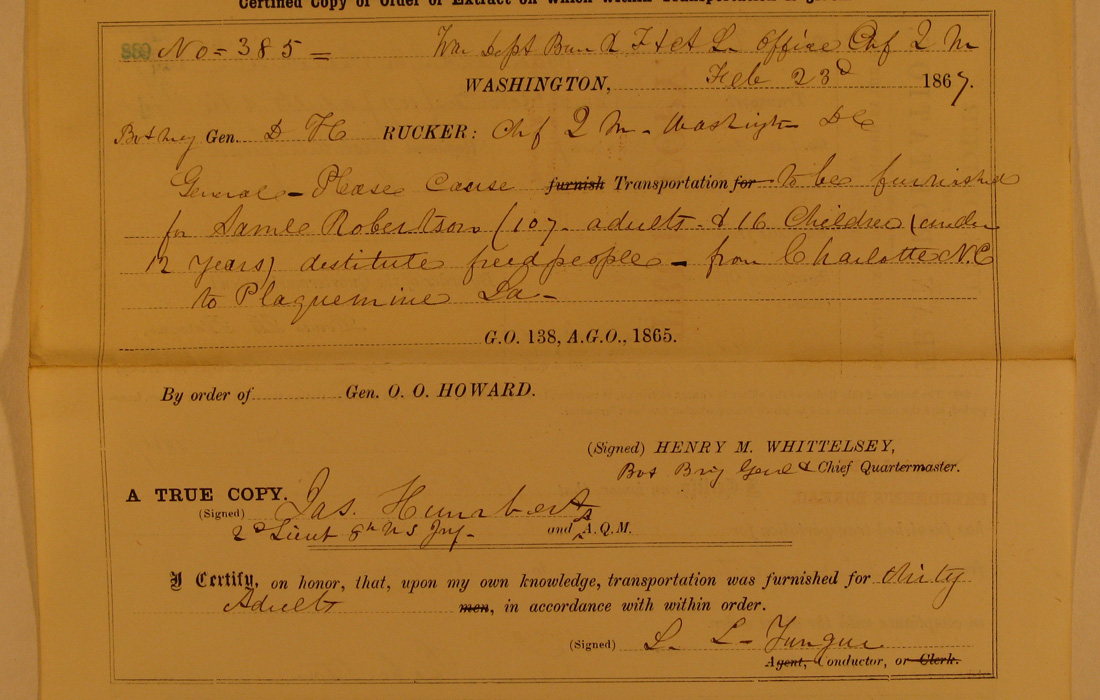 Certified Copy of Order or Extract on which within Transportation is given
No= 385 = War Dept Bu R F & A L Office Chf Q M
WASHINGTON, Feb 23d 1867.
Gen. D H RUCKER: Chf Q M - Washington DC
General - Please Cause furnish Transportation for to be furnished
for Saml Robertson (107 adults & 16 Children (under
12 years) destitute freedpeople - from Charlotte N.C
to Plaquemine La -
G.O. 138, A.G.O., 1865.
By order of Gen. O. O. HOWARD.
(Signed) HENRY M. WHITTELSEY,
Bvt Brig Genl & Chief Quartermaster.
A TRUE COPY.
(Signed) Jas. Humbert
2d Lieut 8th U S Inf. and A. A.Q.M.
I Certify, on honor, that, upon my own knowledge, transportation was furnished for thirty
Adults men, in accordance with within order.
(Signed) S. L.
Agent, Conductor, or Clerk.